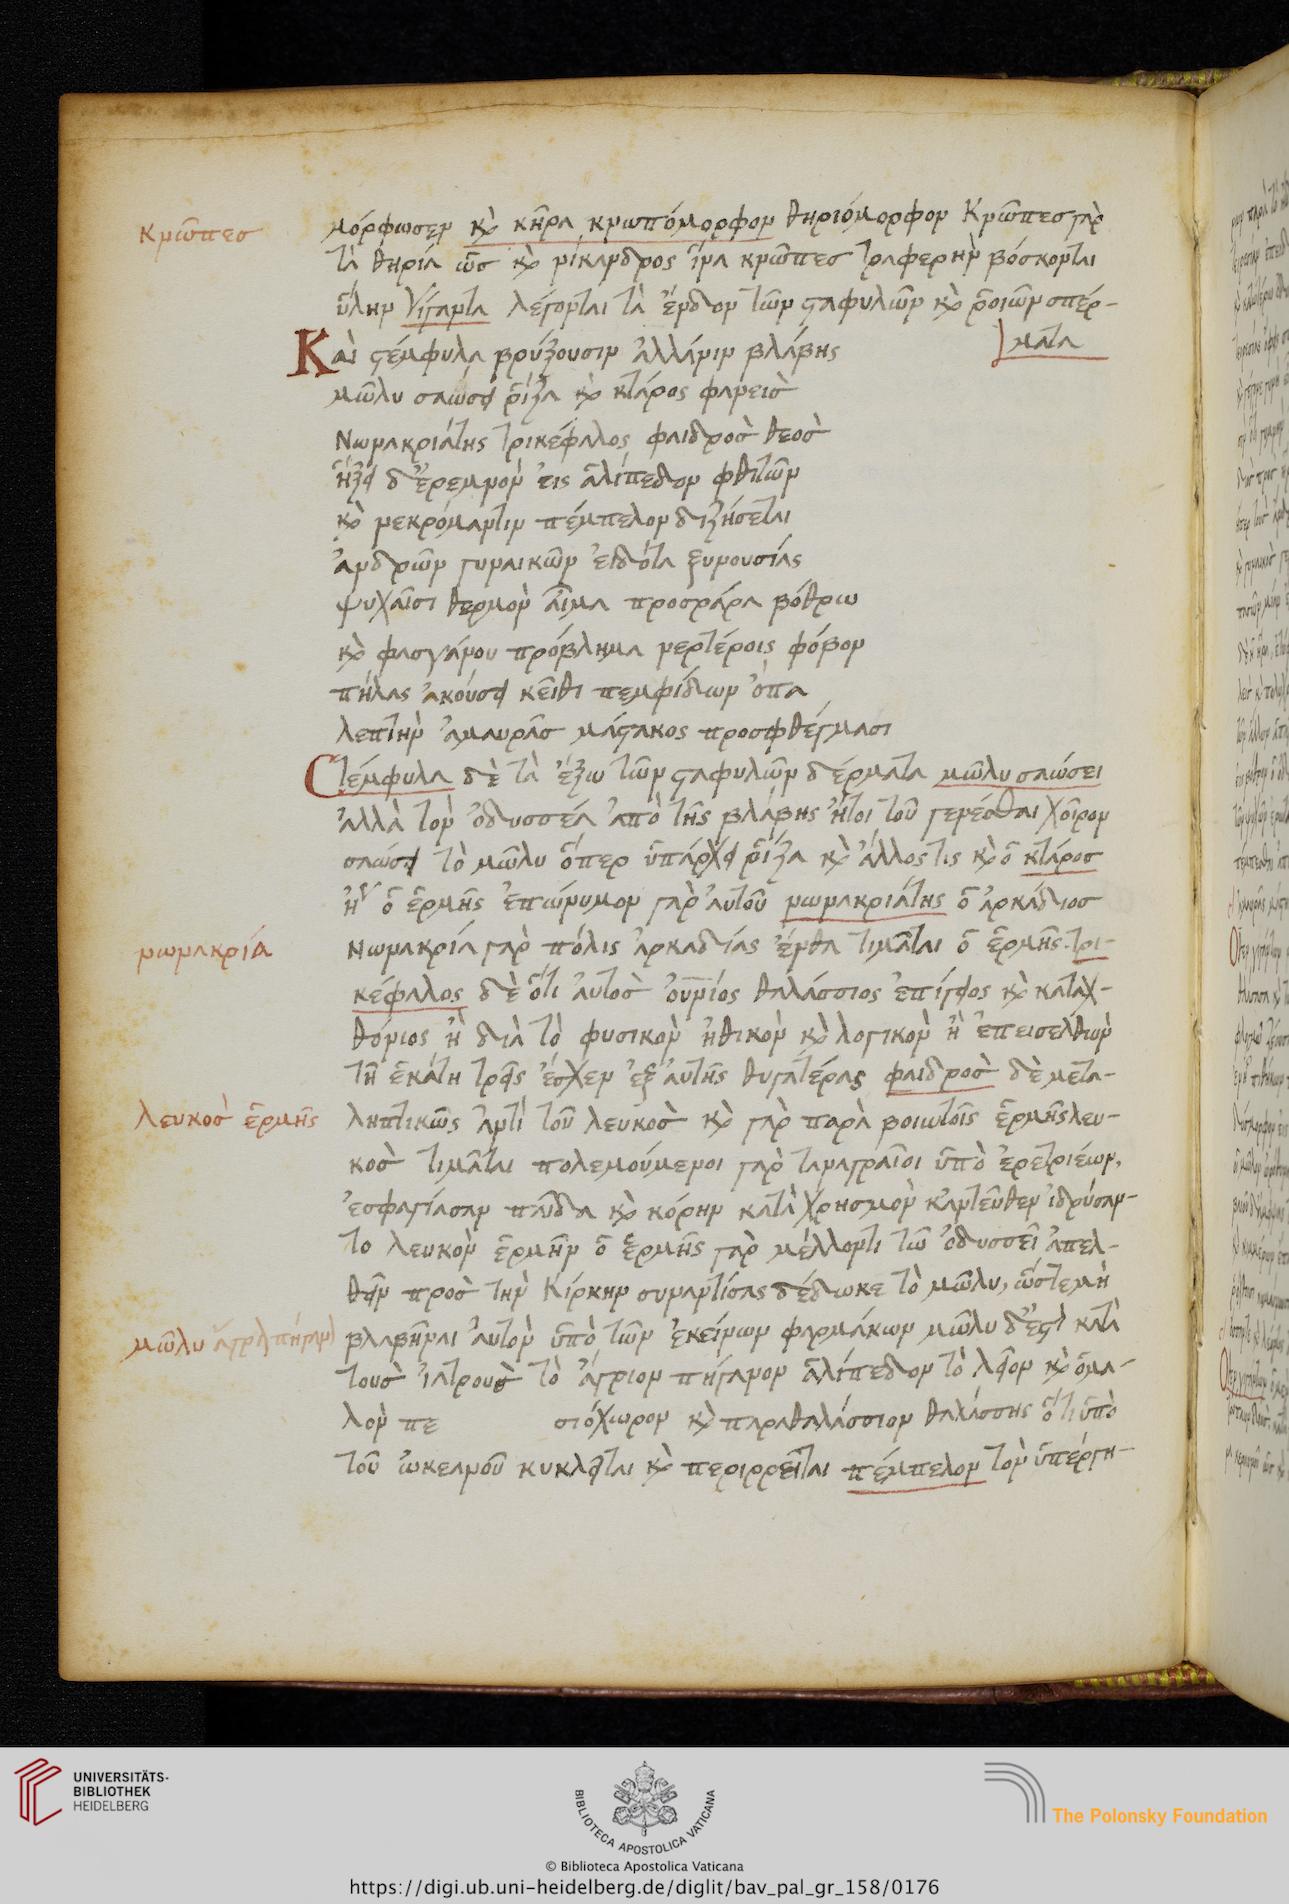 κνῶπες
μόρφωσεν καὶ κῆρα κνωπόμορφον θηριόμορφον Κνῶπες γὰρ
τὰ θηρία ὡς καὶ νίκανδρος ἵνα κνῶπες τραφερὴν βόσκονται
ὕλην Γίγαρτα λέγονται τὰ ἔνδον τῶν σταφυλῶν καὶ ῥοιῶν σπέρ-
ματα
Καὶ στέμφυλα βρύξουσιν ἀλλάνιν βλάβης
μῶλυ σαώσει ῥίζα καὶ κτάρος φανεὶς
Νωνακριάτης τρικέφαλος φαιδρὸς θεὸς
ἥξει δ' ἐρεμνὸν εἰς ἁλίπεδον φθιτῶν
καὶ νεκρόμαντιν πέμπελον διζήσεται
ἀνδρῶν γυναικῶν εἰδότα ξυνουσίας
ψυχαῖσι θερμὸν αἷμα προσράνα βόθρω
καὶ φασγάνου πρόβλημα νερτέροις φόβον
πήλας ἀκούσει κεῖθι πεμφίδων ὄπα
λεπτὴν ἀμαυρᾶς μάστακος προσφθέγμασι
Στέμφυλα δὲ τὰ ἔξω τῶν σταφυλῶν δέρματα μῶλυ σαώσει
ἀλλὰ τὸν ὀδυσσέα ἀπὸ τῆς βλάβης ἤτοι τοῦ γενέσθαι χοῖρον
σαώσει τὸ μῶλυ ὅπερ ὑπάρχει ῥίζα καὶ ἄλλος τις καὶ ὁ κτάρος
ἤγουν ὁ ἑρμῆς ἐπώνυμον γὰρ αὐτοῦ νωνακριάτης ὁ ἀρκάδιος
νωνακρία
Νωνακρία γὰρ πόλις ἀρκαδίας ἔνθα τιμᾶται ὁ ἑρμῆς τρι-
κέφαλος δὲ ὅτι αὐτὸς οὐράνιος θαλάσσιος ἐπίγειος καὶ καταχ-
θόνιος ἢ διὰ τὸ φυσικὸν ἠθικὸν καὶ λογικὸν ἢ ἐπεισελθὼν
τῆ ἑκάτη τρεῖς ἔσχεν ἐξ αὐτῆς θυγατέρας φαιδρὸς δὲ μετα-
λευκὸς ἑρμῆς
ληπτικῶς ἀντὶ τοῦ λευκὸς καὶ γὰρ παρὰ βοιωτοῖς ἑρμῆς λευ-
κὸς τιμᾶται πολεμούμενοι γὰρ ταναγραῖοι ὑπὸ ἐρετριέων,
ἐσφαγίασαν παῖδα καὶ κόρην κατὰ χρησμὸν κἀντεῦθεν ἱδρύσαν-
το λευκὸν ἑρμῆν ὁ ἑρμῆς γὰρ μέλλοντι τῶ ὀδυσσεῖ ἀπελ-
θεῖν πρὸς τὴν Κίρκην συναντίσας δέδωκε τὸ μῶλυ, ὥστε μὴ
μῶλυ ἄγριον πήγανον
βλαβῆναι αὐτὸν ὑπὸ τῶν ἐκείνων φαρμάκων μῶλυ δ' ἐστὶ κατὰ
τοὺς ἰατροὺς τὸ ἄγριον πήγανον ἁλίπεδον τὸ λεῖον καὶ ὁμα-
λὸν πε σιόχωρον καὶ παραθαλάσσιον θαλάσσης ὅτι ὑπὸ
τοῦ ὠκεανοῦ κυκλεῖται καὶ περιρρεῖται πέμπελον τὸν ὑπέργη-
UNIVERSITÄTS-
BIBLIOTHEK
HEIDELBERG
BIBLIOTHECA APOSTOLICA VATICANA
The Polonsky Foundation
© Biblioteca Apostolica Vaticana
https://digi.ub.uni-heidelberg.de/diglit/bav_pal_gr_158/0176